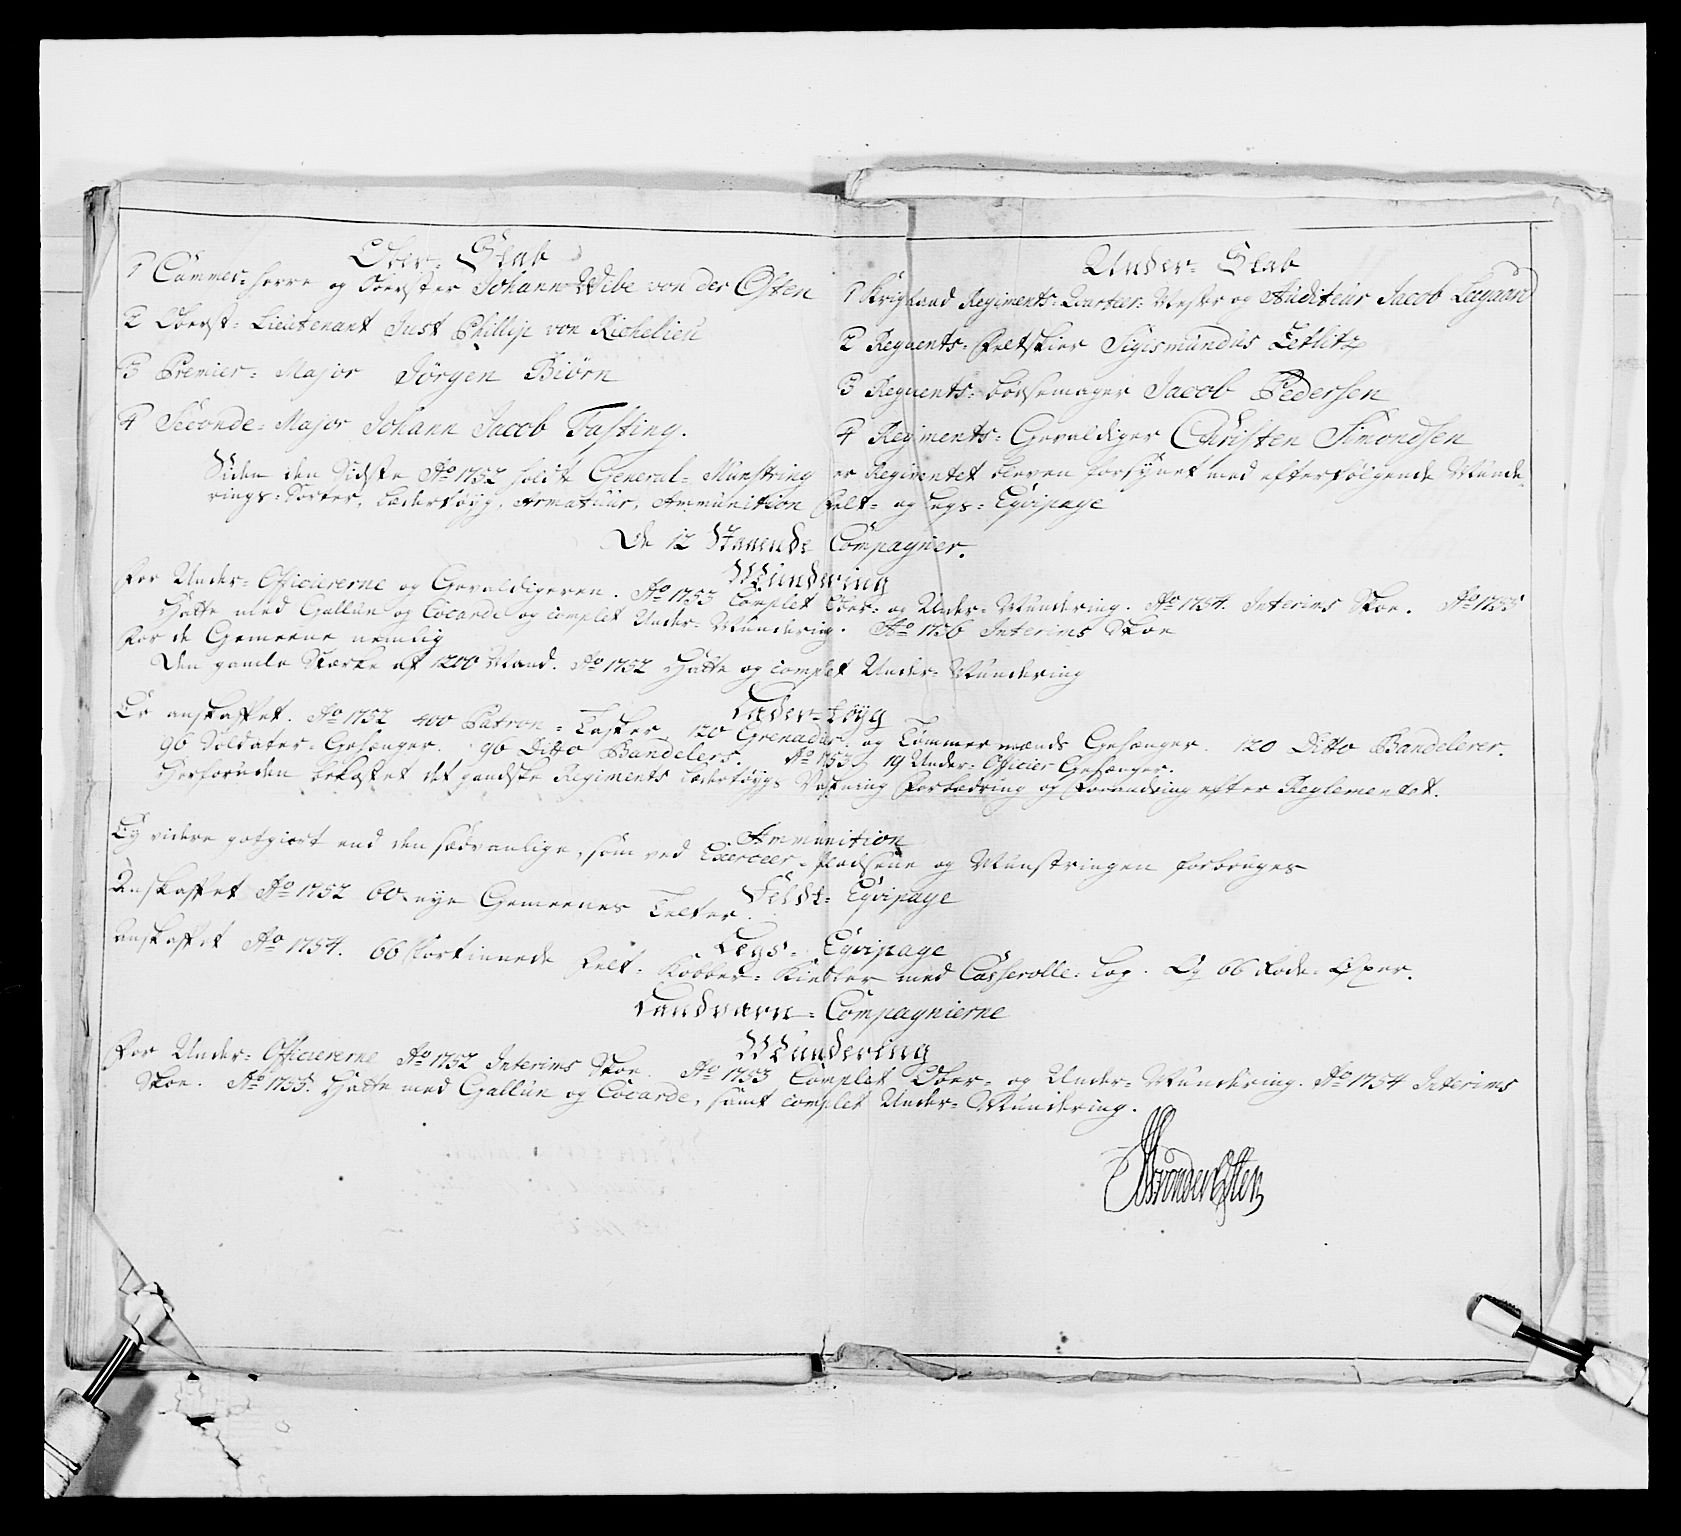 Ober- Stab
1 Cammer-Herre og Oberster Johann Wibe von der Osten
2 Oberst- Lieutenant Just Phillip von Richelieu
3 Premier- Major Jørgen Biørn
4 Seconde- Major Johann Jacob Fasting.
Under- Stab
1 Krigsraad Regiments-Quarteer-Mester og Auditeur Jacob Lagaard
2 Regments- Feltskier Sigismundus Zetlitz
3 Regments- Bøssemager Jacob Pedersen
4 Regiments- Gevaldiger Christen Simondsen
Siden den Sidste Ao 1752 holdte General- Munstring er Regimentet bleven forsynet med efterfølgende Munde-
rings- Sorter, Lædertøyg, Armatuur, Ammunition Felt- og Legs- Eqvipage
De 12 Staaende Compagnier.
Mundering
For Under- Officiererne og Gevaldigeren. Ao 1753 Complet Ober- og Under- Mundering. Ao 1754. Interims Skoe. Ao 1755
Hatte med Gallun og Cocarde og complet Under- Mundering. Ao 1756 Interims Skoe
For de Gemeene nemlig
Den gamle Stærke af 1200 Mand. Ao 1752 Hatte og complet Under- Mundering
Læder-tøyg
Er anskaffet. Ao 1752 400 Patron- Tasker, 120 Grenader- og Tømmermænds Gehænger. 120 Ditto Bandelerer.
96 Soldater- Gehænger. 96 Ditto Bandelers. Ao 1753 19 Under- Officier Gehænger.
Herforuden bekostet det gandske Regiments Lædertøygs Forbedring og Forandring efter Reglementet.
Ammunition
Ey videre godgiort end den sædvanlige, som ved Exerceer- Pladsene og Munstringen forbruges
Feldt- Eqvipage
Anskaffet Ao 1752 60 nye Gemeenes Telter.
Legs- Eqvipage
Anskaffet Ao 1754. 66 Fortinnede Felt- Kobber- Kiedler med Casserolle- Log. Og 66 Rode- Øxer.
Landværn- Compagnierne
Mundering
For Under- Officiererne Ao 1752 Interims Skoe. Ao 1753 Complet Ober- og Under- Mundering. Ao 1754 Interims
Skoe. Ao 1755. Hatte med Gallun og Cocarde, samt complet Under- Mundering.
JWvonderOsten